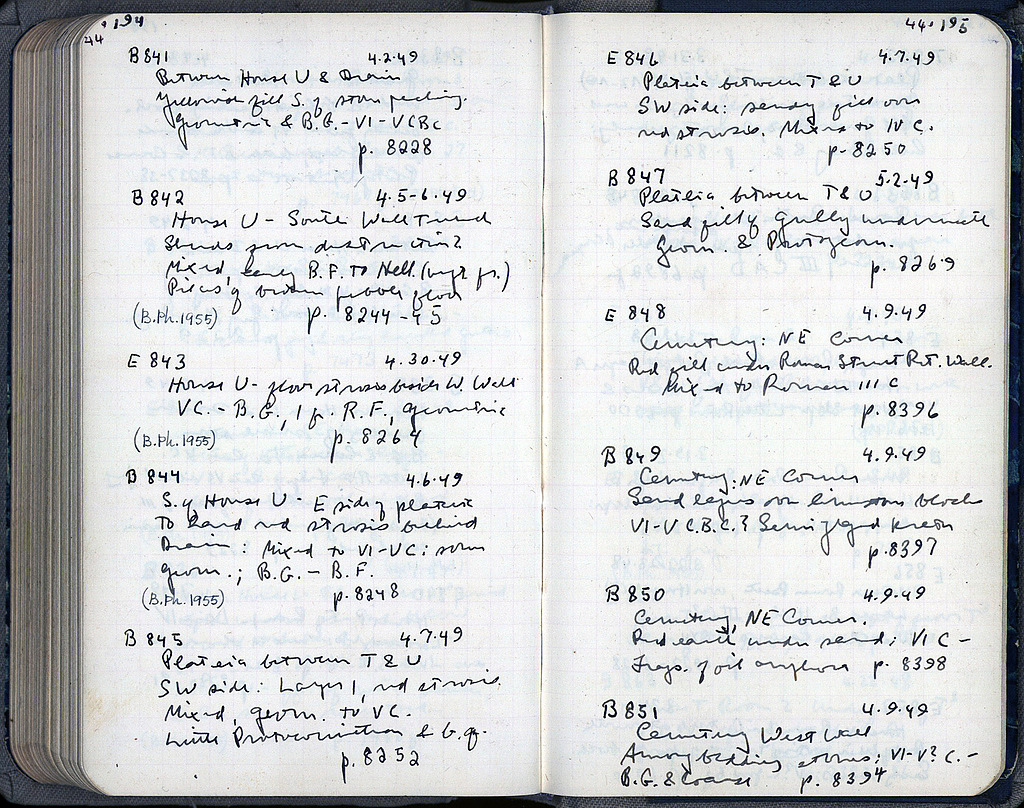 44 · 194
B 841 4.2.49
Between House U & Drain
Yellowish fill S. of stone packing.
Geometric & B.G.-VI-VCBC
p. 8228
B 842 4.5-6.49
House U - South Wall Trench
Sherds from destruction?
Mixed, early B.F. to Hell. (wt. fr.)
Pieces of broken pebble floor
(B.Ph.1955) p. 8244-45
E 843 4.30.49
House U - floor strosis beside W. Wall
VC. - B.G., 1 fr. R.F., Geometric
(B.Ph.1955) p. 8264
B 844 4.6.49
S. of House U - E side of plateia
To hard red strosis behind
Drain: Mixed to VI-VC: some
geom.; B.G. - B.F.
(B.Ph.1955) p. 8248
B 845 4.7.49
Plateia between T & U
SW side: Layer 1, red strosis.
Mixed, geom. to VC.
Little Protocorinthian & G. of.
p. 8252
44 · 195
E 846 4.7.49
Plateia between T & U
SW side: sandy fill over
red strosis. Mixed to IV C.
p. 8250
B 847 5.2.49
Plateia between T & U
Sand filty Gully underneath
Geom. & Protogeom.
p. 8269
E 848 4.9.49
Cemetery: NE Corner
Red fill under Roman Street Ret. Wall.
Mixed to Roman III C
p. 8396
B 849 4.9.49
Cemetery: NE Corner
Sand layer over limestone blocks
VI-V C.B.C.? Semi glazed krater
p. 8397
B 850 4.9.49
Cemetery, NE Corner.
Red earth under sand; VI C -
Frags. of oil amphora p. 8398
B 851 4.9.49
Cemetery West Wall
Among bedding stones; VI-V? C. -
B.G. & Coarse p. 8394